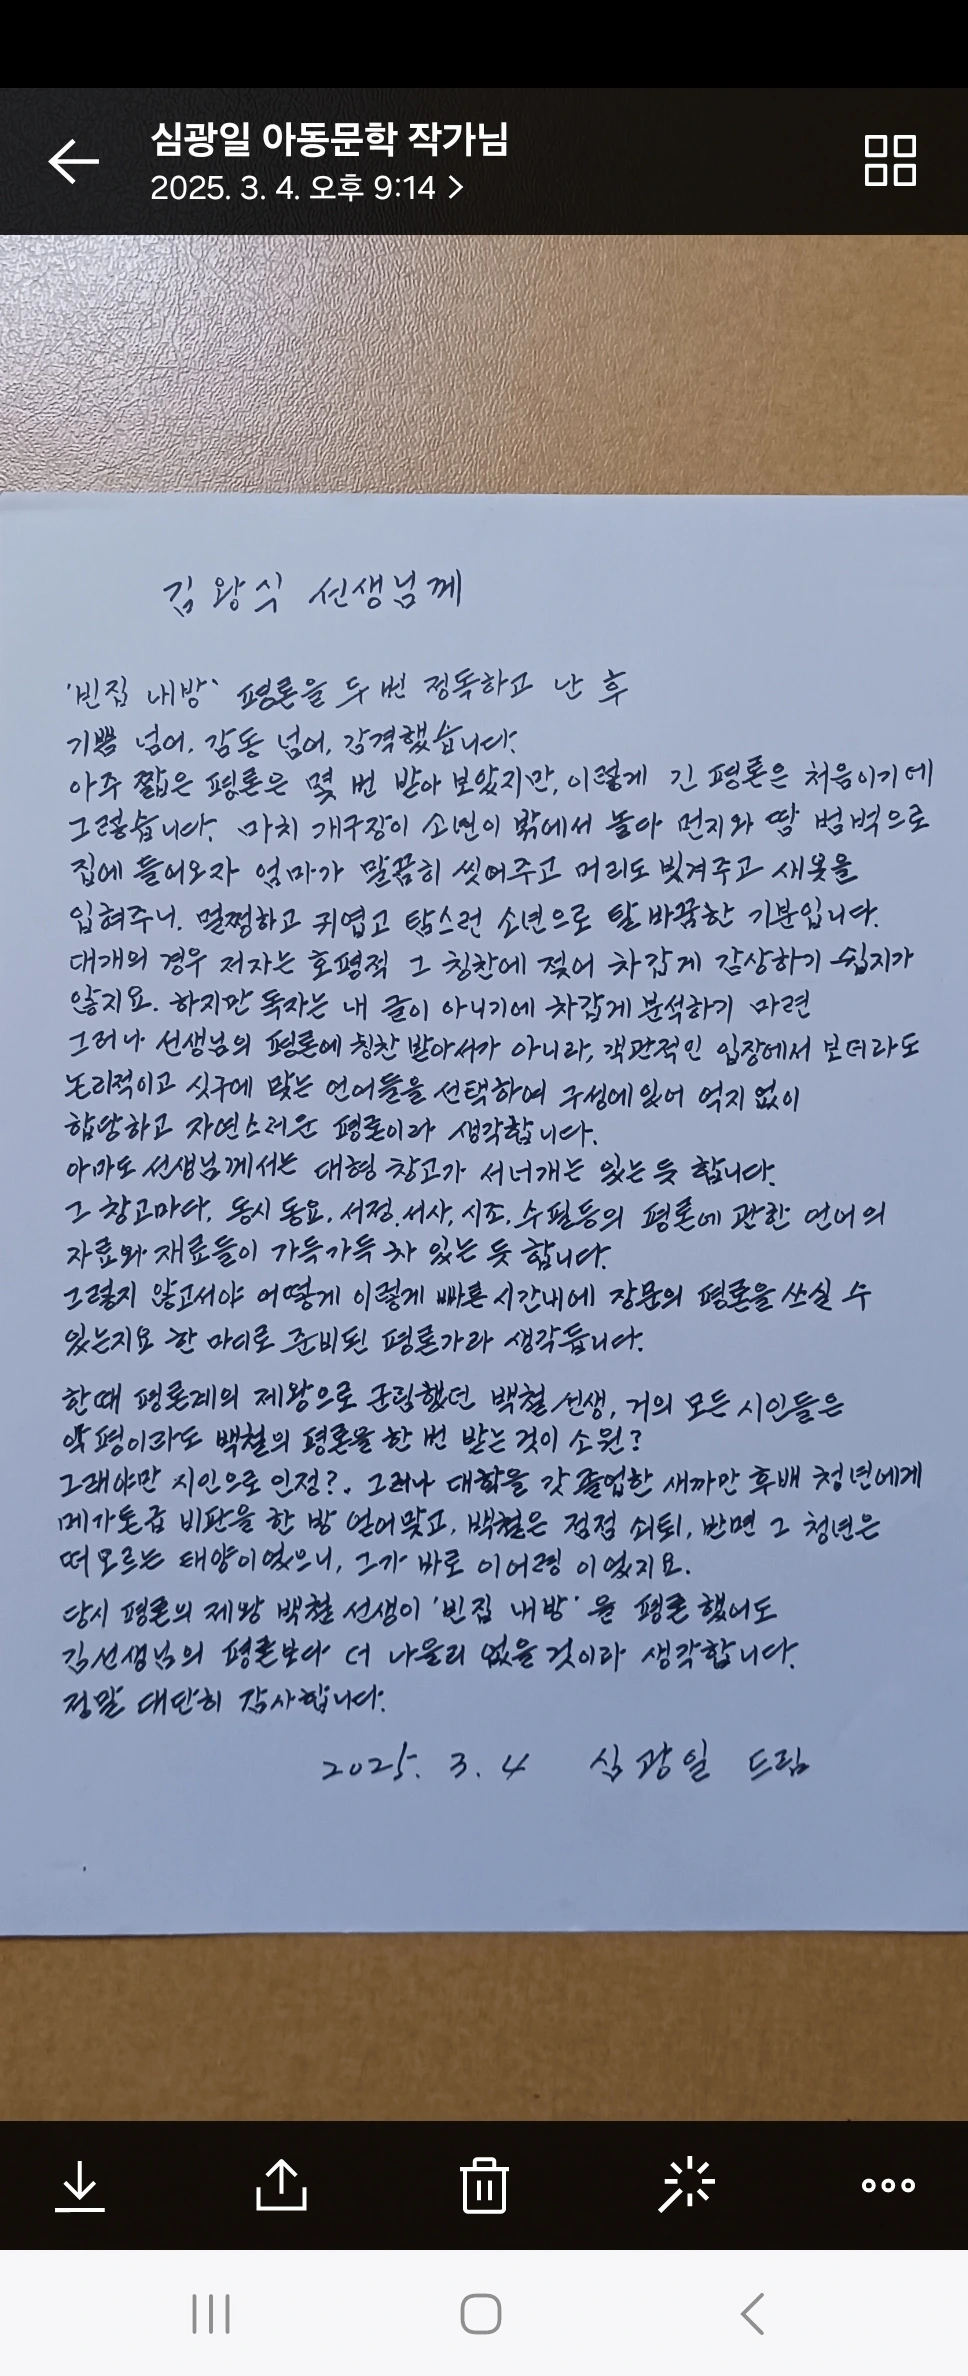 심광일 아동문학 작가님
2025. 3. 4. 오후 9:14
김왕식 선생님께
'빈집 내방' 평론을 두 번 정독하고 난 후
기쁨 넘어, 감동 넘어, 감격했습니다.
아주 짧은 평론은 몇 번 받아 보았지만, 이렇게 긴 평론은 처음이기에
그렇습니다. 마치 개구장이 소년이 밖에서 놀다 먼지와 땀 범벅으로
집에 들어오자 엄마가 말끔히 씻어주고 머리도 빗겨주고 새옷을
입혀주니, 멀쩡하고 귀엽고 탐스런 소년으로 탈바꿈한 기분입니다.
대개의 경우 저자는 호평적 그 칭찬에 젖어 차갑게 감상하기 쉽지가
않지요. 하지만 독자는 내 글이 아니기에 차갑게 분석하기 마련
그러나 선생님의 평론에 칭찬 받아서가 아니라, 객관적인 입장에서 보더라도
논리적이고 싯구에 맞는 언어들을 선택하여 구성에있어 억지없이
합당하고 자연스러운 평론이라 생각합니다.
아마도 선생님께서는 대형 창고가 서너개는 있는 듯 합니다.
그 창고마다, 동시 동요, 서정, 서사, 시조, 수필등의 평론에 관한 언어의
자료와 재료들이 가득가득 차 있는 듯 합니다.
그렇지 않고서야 어떻게 이렇게 빠른 시간내에 장문의 평론을 쓰실 수
있는지요 한 마디로 준비된 평론가라 생각듭니다.
한때 평론계의 제왕으로 군림했던 백철 선생, 거의 모든 시인들은
악평이라도 백철의 평론을 한 번 받는 것이 소원?
그래야만 시인으로 인정?. 그러나 대학을 갓 졸업한 새까만 후배 청년에게
메가톤급 비판을 한 방 얻어맞고, 백철은 점점 쇠퇴, 반면 그 청년은
떠오르는 태양이였으니, 그가 바로 이어령 이였지요.
당시 평론의 제왕 백철 선생이 '빈집 내방'을 평론 했어도
김선생님의 평론보다 더 나을리 없을 것이라 생각합니다.
정말 대단히 감사합니다.
2025. 3. 4 심광일 드림